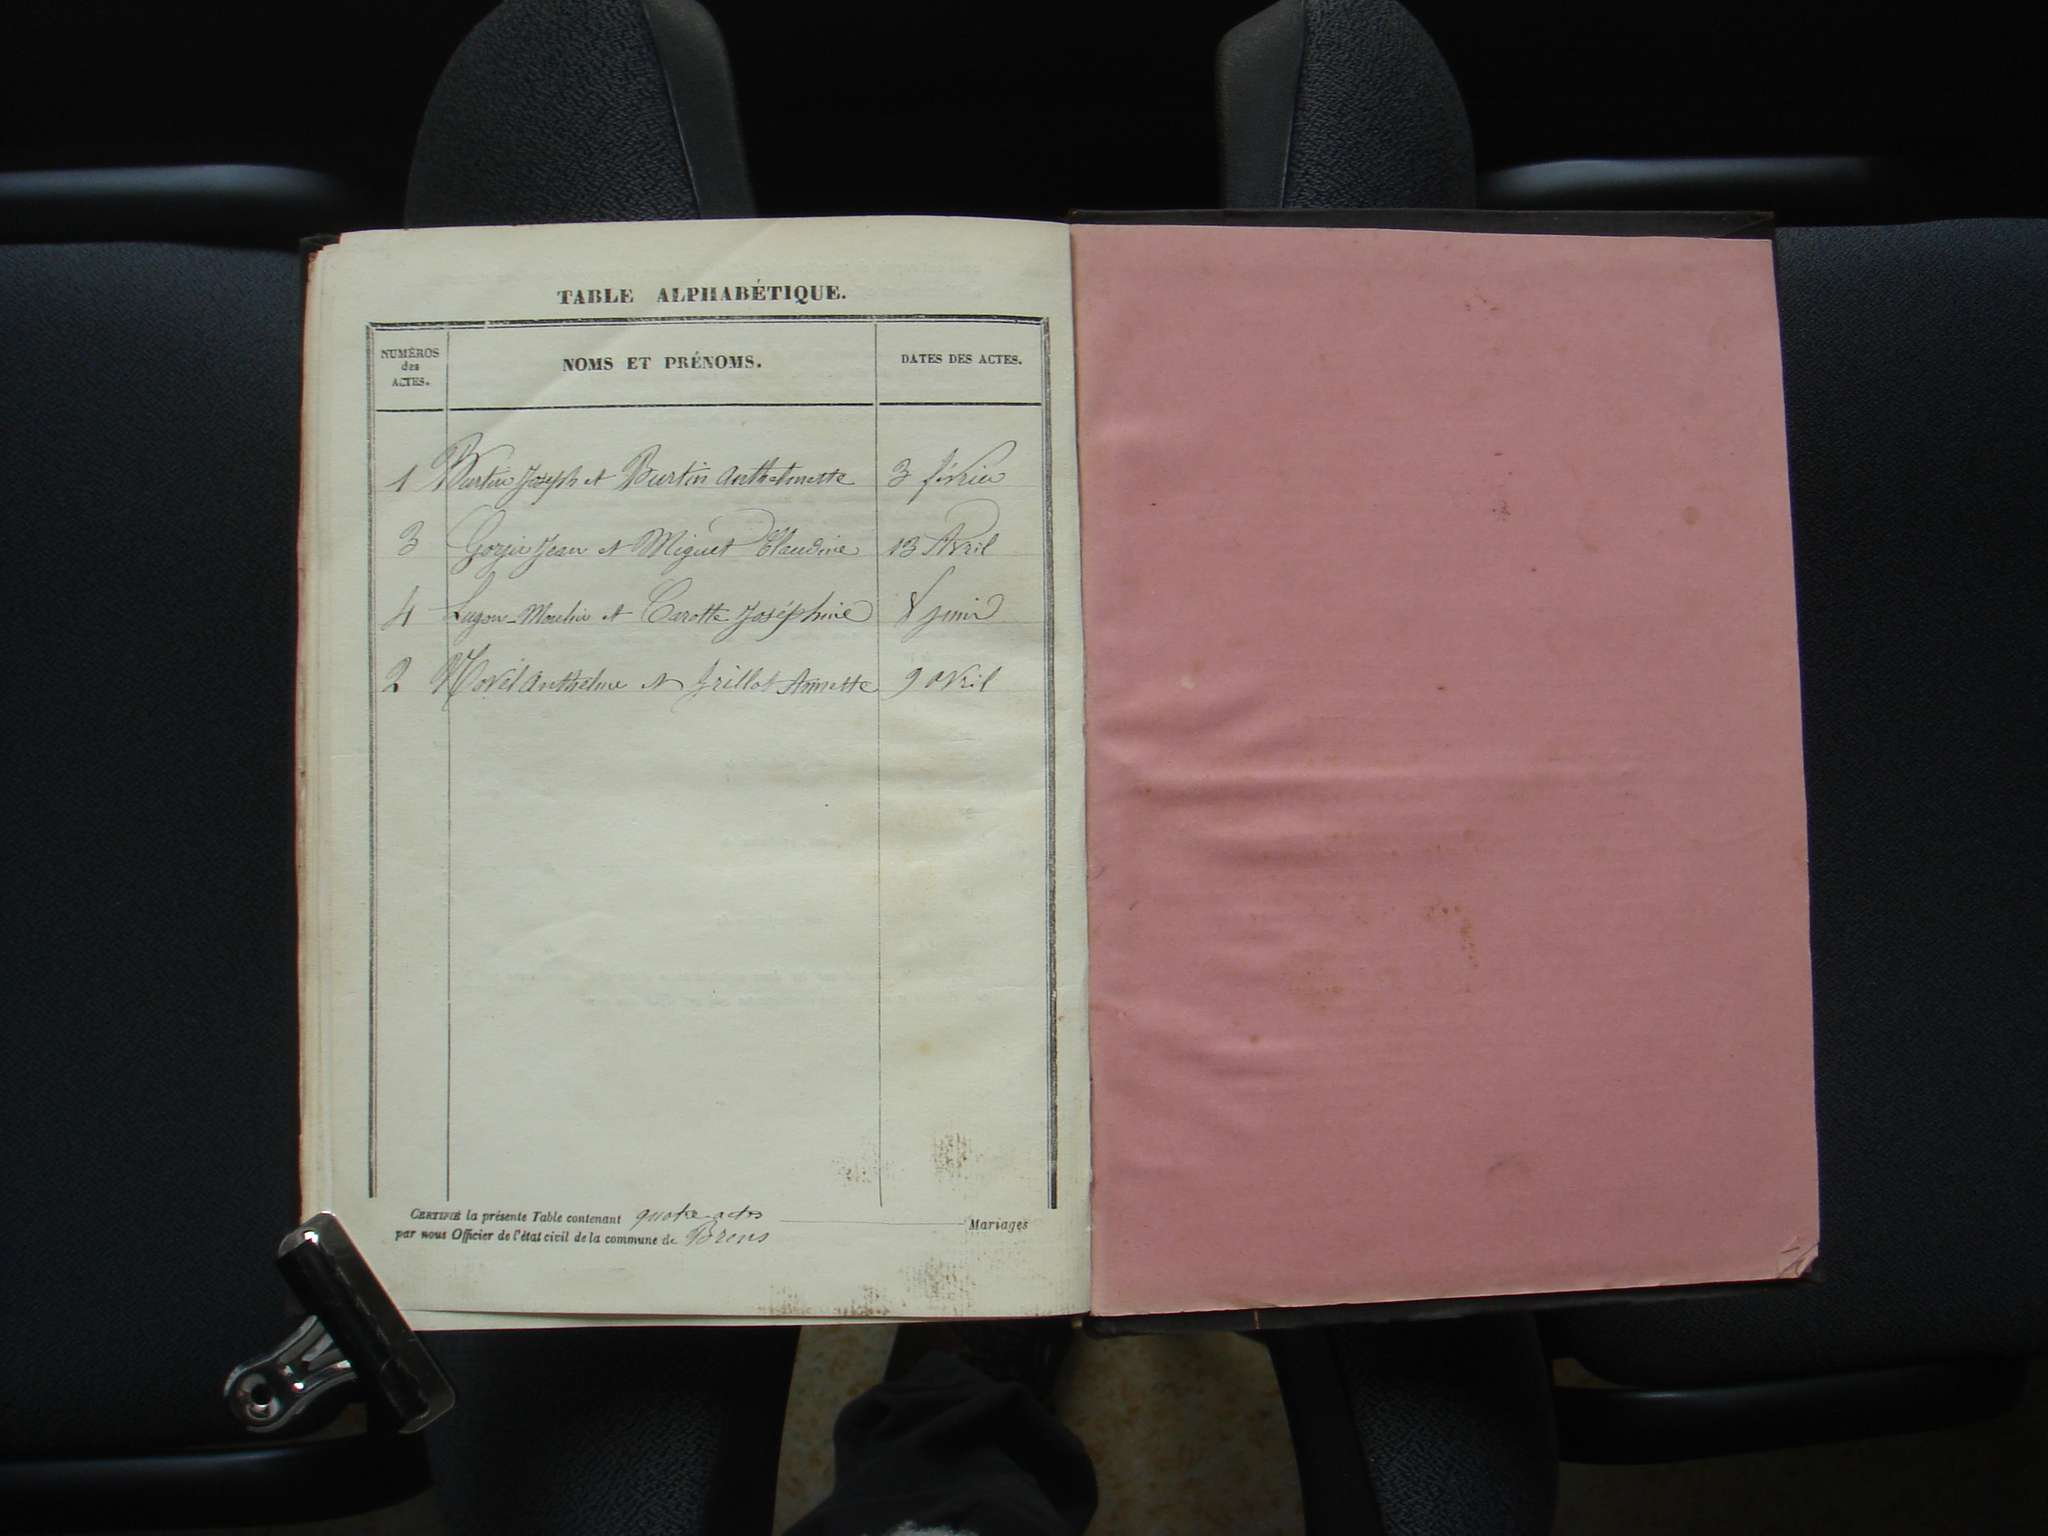 TABLE ALPHABÉTIQUE.
NUMÉROS des ACTES.
NOMS ET PRÉNOMS.
DATES DES ACTES.
1 Burtin Joseph et Burtin Anthelmette 3 février
3 Gorjie Jean et Miguet Claudine 13 Avril
4 Lugon-Moulin et Carotte Joséphine 8 juin
2 Morel Anthelme et Grillot Annette 9 avril
CERTIFIÉ la présente Table contenant quatre actes Mariages
par nous Officier de l'état civil de la commune de Brens